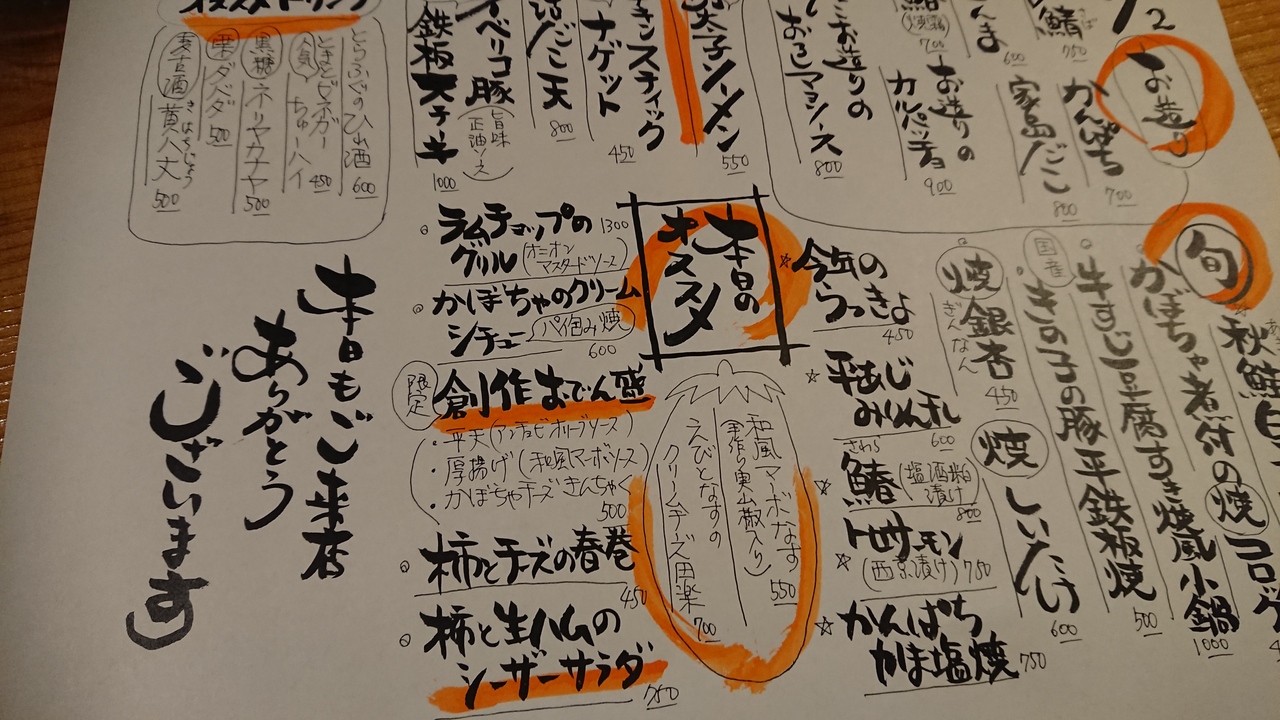 /2
お造り
鯖
さば
750
かんぱち
700
家島だこ
800
600
700
お造りの
カルパッチョ
900
お造りの
おろしマヨソース
800
明太子ソーメン
550
スティック
450
ナゲット
天
800
イベリコ豚
旨味
正油ソース
鉄板ステーキ
1000
オススメドリンク
とらふぐのひれ酒
600
人気
とまとビネガー
ちゅーハイ
450
黒糖
ネリヤカナヤ
500
栗
ダバダ
500
麦古酒
黄八丈
きはちじょう
500
旬
かぼちゃ煮付の焼コロッケ
牛すじ豆腐すき焼風小鍋
1000
国産
きのこの豚平鉄板焼
500
焼
銀杏
ぎんなん
450
焼
しいたけ
600
本日の
オススメ
今年の
らっきょ
450
平あじ
みりん干し
600
さわら
鰆
塩酒粕
漬け
800
トロサーモン
(西京漬け)
750
かんぱち
かま塩焼
750
和風マーボなす
(手作り実山椒入り)
550
えびとなすの
クリームチーズ田楽
700
ラムチョップの
グリル
1300
(オニオン
マスタードソース)
かぼちゃのクリーム
シチュー
パイ包み焼
600
限定
創作おでん盛
・平天(アンチョビオリーブソース)
・厚揚げ(和風マーボソース)
・かぼちゃチーズきんちゃく
500
柿とチーズの春巻
450
柿と生ハムの
シーザーサラダ
750
本日もご来店
ありがとう
ございます